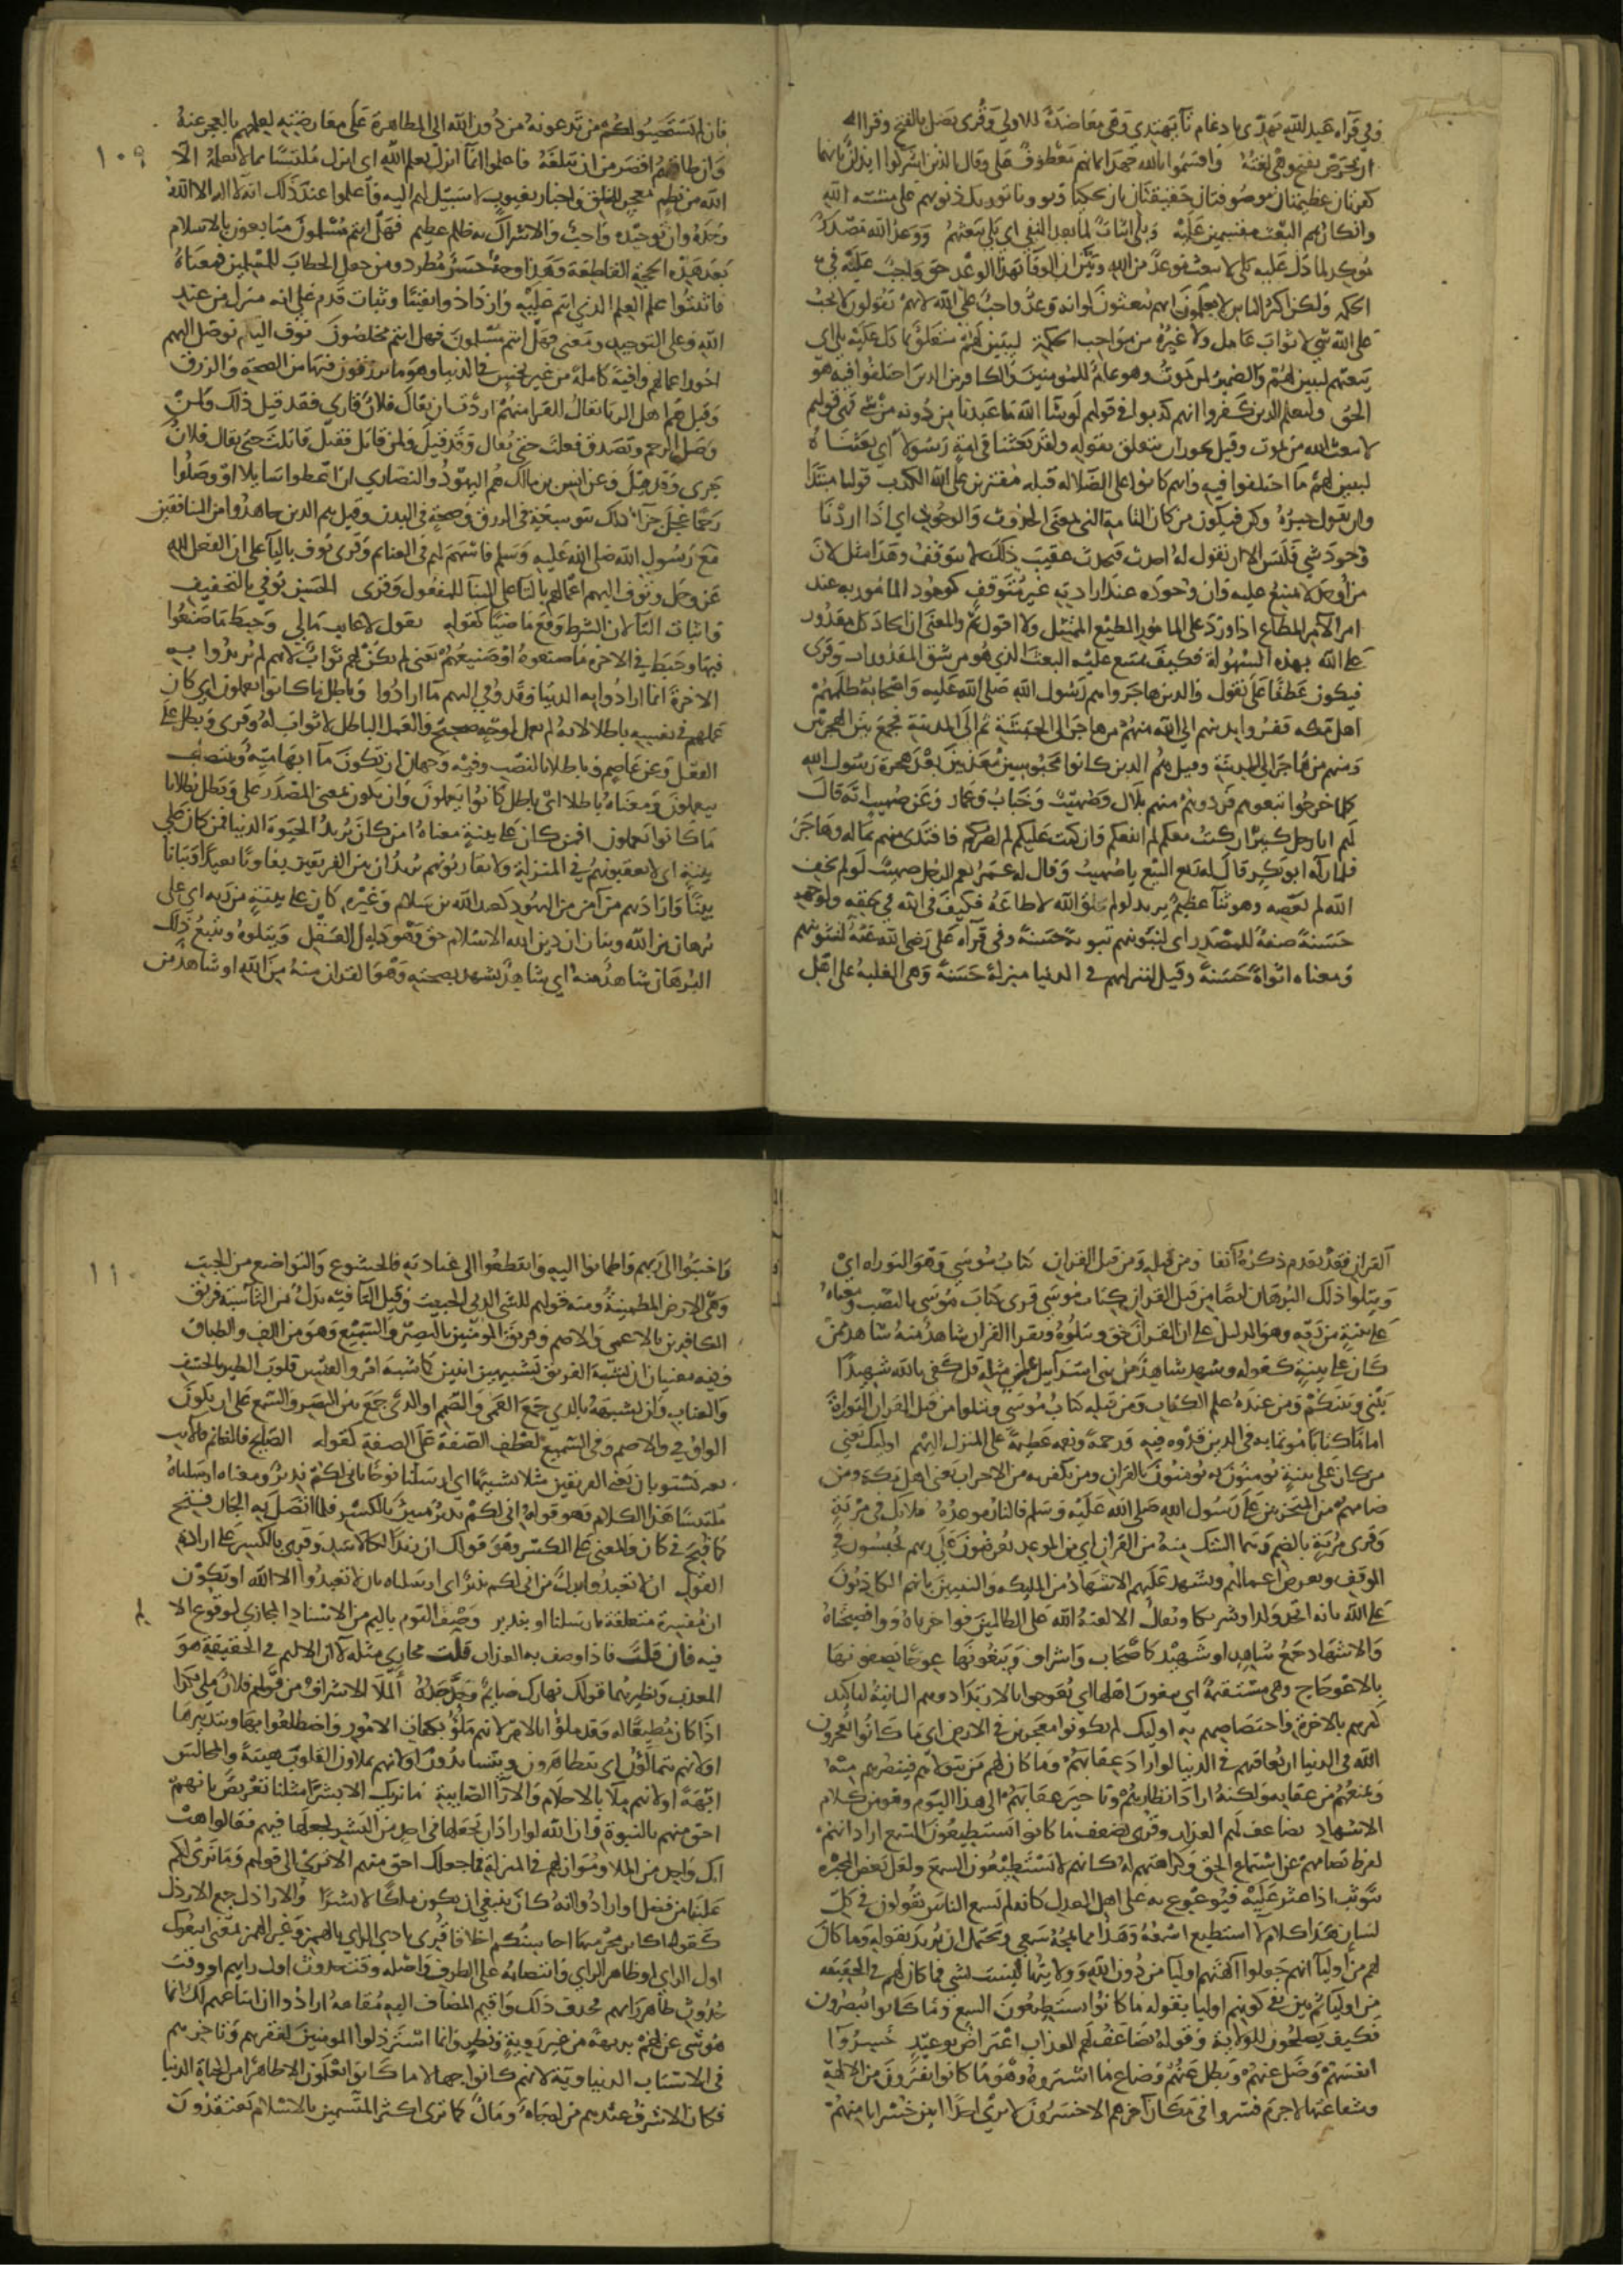 وفي قراءة عبد الله يهدي بادغام تآ يهتدي وهي معاضدة للاولي وقري يضل بالفتح وقرا
ان تحرص بفتح وهي لغة واقسموا بالله جهد ايمانهم معطوف على وقال الذين اشركوا ايذانا بانهما
كفرتان عظيمتان موصوفتان حقيقتان بان
وانكارهم البعث مقسمين عليه وبلى اثبات لما بعد النفي اي بلى يبعثهم ووعد الله مصدر
موكد لما دل عليه بلى لان يبعث موعد من الله وبين ان الوفا بهذا الوعد حق واجب عليه في
الحكمة ولكن اكثر الناس لا يعلمون انهم يبعثون او انه وعد واجب على الله لانهم يقولون لا يجب
على الله شي لا ثواب عامل ولا غيره من مواجب الحكمة ليبين لهم متعلق بما دل عليه بلى اي
يبعثهم ليبين لهم والضمير لمن يموت وهو عام للمومنين والكافرين الذين اختلفوا فيه هو
الحق وليعلم الذين كفروا انهم كذبوا في قولهم لو شا الله ما عبدنا من دونه من شي وفي قولهم
لا يبعث الله من يموت وقيل يجوز ان يتعلق بقوله ولقد بعثنا في كل امة رسولا اي بعثناه
ليبين لهم ما اختلفوا فيه وانهم كانوا على الضلالة قبله مفترين على الله الكذب قولنا مبتدا
وان نقول خبره وكن فيكون من كان التامة التي بمعنى الحدوث والوجود اي اذا اردنا
وجود شي فليس الا ان نقول له احدث فيحدث عقيب ذلك لا يتوقف وهذا مثل لان
مرادا لا يمتنع عليه وان وجوده عند ارادته غير متوقف كوجود المامور به عند
امر الآمر المطاع اذا ورد على المامور المطيع الممتثل ولا قول ثم والمعنى ان ايجاد كل مقدور
على الله بهذه السهولة فكيف يمتنع عليه البعث الذي هو من شق المقدورات وقري
فيكون عطفا على نقول والذين هاجروا هم رسول الله صلى الله عليه واصحابه ظلمهم
اهل مكة ففروا بدينهم الي الله منهم من هاجر الى الحبشة ثم الى المدينة فجمع بين الهجرتين
ومنهم من هاجر الى المدينة وقيل هم الذين كانوا محبوسين معذبين بعد هجرة رسول الله
كلما خرجوا تبعوهم فردوهم منهم بلال وصهيب وخباب وعمار وعن صهيب انه قال
لهم انا رجل كبير ان كنت معكم لم انفعكم وان كنت عليكم لم اضركم فافتدى منهم بماله وهاجر
فلما رآه ابو بكر قال له ربح البيع يا صهيب وقال له عمر نعم الرجل صهيب لو لم يخف
الله لم يعصه وهو ثنا عظيم يريد لو لم يخلق الله لاطاعه فكيف
حسنة صفة للمصدر اي لنبوئنهم تبوئة حسنة وفي قراءة علي رضي الله عنه لنثوينهم
ومعناه اثواة حسنة وقيل لننزلنهم في الدنيا منزلة حسنة وهي الغلبة على اهل
١٠٩
فان لم يستجيبوا لكم من تدعونه من دون الله الى المظاهرة على معارضته لعلمهم بالعجز عنه
وان طاقتهم اقصر من ان تبلغه فاعلموا انما انزل بعلم الله اي انزل ملتبسا بما لا يعلمه الا
الله من نظم معجز للخلق واخبار بغيوب لا سبيل لهم اليه واعلموا عند ذلك ان لا اله الا الله
وحده وان توحيده واجب والاشراك به ظلم عظيم فهل انتم مسلمون متابعون بالاسلام
بعد هذه الحجة القاطعة وهذا وجه حسن مطرد ومن جعل الخطاب للمسلمين فمعناه
فاثبتوا على العلم الذي انتم عليه وازدادوا يقينا وثبات قدم على انه منزل من عند
الله وعلى التوحيد ومعنى فهل انتم مسلمون فهل انتم مخلصون نوف اليهم نوصل اليهم
اجور اعمالهم وافية كاملة من غير بخس في الدنيا وهو ما يرزقون فيها من الصحة والرزق
وقيل هم اهل الريا يقال للقرا منهم اردت ان يقال فلان قاري فقد قيل ذلك ولمن
وصل الرحم وتصدق فعلت حتى يقال وقد قيل ولمن قاتل فقتل قاتلت حتى يقال فلان
جري وقد قيل وعن انس بن مالك هم اليهود والنصاري ان اعطوا سايلا او وصلوا
رحما عجل جزآ ذلك بتوسعة في الرزق وصحة في البدن وقيل هم الذين جاهدوا من المنافقين
مع رسول الله صلى الله عليه وسلم فاسهم لهم في الغنايم وقري يوف باليا على ان الفعل لله
عز وجل وتوف اليهم اعمالهم بالتا على البنا للمفعول وقري الحسن نوفي بالتخفيف
واثبات اليا لان الشرط وقع ماضيا كقوله يقول لا غايب مالي وحبط ما صنعوا
فيها وحبط في الاخرة ما صنعوه او صنيعهم يعني لم يكن لهم ثواب لانهم لم يريدوا به
الاخرة انما ارادوا به الدنيا وقد وفي اليهم ما ارادوا وباطل ما كانوا يعملون اي كان
عملهم في نفسه باطلا لانه لم يعمل لوجه صحيح والعمل الباطل لا ثواب له وقري وبطل على
الفعل وعن عاصم وباطلا بالنصب وفيه وجهان ان تكون ما ابهامية وينتصب
بيعملون ومعناه باطلا اي باطل كانوا يعملون وان يكون بمعنى المصدر على وبطل بطلانا
ما كانوا يعملون افمن كان على بينة معناه امن كان يريد الحيوة الدنيا فمن كان على
بينة اي لا يعقبونهم في المنزلة ولا يقاربونهم يريد ان بين الفريقين تفاوتا بعيدا وتباينا
بينا واراد بهم من آمن من اليهود كعبد الله بن سلام وغيره كان على بينة من ربه اي على
برهان من الله وبيان ان دين الله الاسلام حق وهو دليل العقل ويتلوه ويتبع ذلك
البرهان شاهد منه اي شاهد يشهد بصحته وهو القران منه من الله او شاهد من
القرآن فقد تقدم ذكره آنفا ومن قبله ومن قبل القران كتاب موسي وهو التوراة اي
ويتلوا ذلك البرهان ايضا من قبل القران كتاب موسي قري كتاب موسى بالنصب ومعناه
على بينة من ربه وهو الدليل على ان القران حق ويتلوه ويقرا القران شاهد منه شاهد ممن
كان على بينة كقوله وشهد شاهد من بني اسرآئيل على مثله قل كفى بالله شهيدا
بيني وبينكم ومن عنده علم الكتاب ومن قبله كتاب موسى ويتلوا من قبل القران التوراة
اماما كتابا موتما به في الدين قدوة فيه ورحمة ونعمة عظيمة على المنزل اليهم اوليك يعني
من كان على بينة يومنون به يومنون بالقران ومن يكفر به من الاحزاب يعني اهل مكة ومن
ضامهم من المتحزبين على رسول الله صلى الله عليه وسلم فالنار موعده فلا تك في مرية
وقري مرية بالضم وهما الشك منه من القران او من الموعد يعرضون على ربهم يحبسون في
الموقف وتعرض اعمالهم ويشهد عليهم الاشهاد من المليكة والنبيين بانهم الكاذبون
على الله بانه اتخذ ولدا وشريكا ويقال الا لعنة الله على الظالمين فواخزياه ووافضيحتاه
والاشهاد جمع شاهد او شهيد كاصحاب واشراف ويبغونها عوجا يصفونها
بالاعوجاج وهي مستقيمة او يبغون اهلها ان يعوجوا بالارتداد وهم الثانية لتاكيد
كفرهم بالاخرة واختصاصهم به اوليك لم يكونوا معجزين في الارض اي ما كانوا يعجزون
الله في الدنيا ان يعاقبهم في الدنيا لو اراد عقابهم وما كان لهم من يتولاهم فينصرهم منه
ويمنعهم من عقابه ولكنه اراد انظارهم وتاخير عقابهم الى هذا اليوم وهو من كلام
الاشهاد يضاعف لهم العذاب وقري يضعف ما كانوا يستطيعون السمع اراد انهم
لفرط تصامهم عن استماع الحق وكراهتهم له كانهم لا يستطيعون السمع ولعل بعض المجبرة
يتوثب اذا عثر عليه فيوعوع به على اهل العدل كانه لم يسمع الناس يقولون في كل
لسان هذا كلام لا استطيع اسمعه وهذا مما يمجه سمعي ويحتمل ان يريد بقوله وما كان
لهم من اوليآ انهم جعلوا آلهتهم اوليا من دون الله وولايتها ليست بشي فما كان لهم في الحقيقة
من اوليا ثم بين نفي كونهم اوليا بقوله ما كانوا يستطيعون السمع وما كانوا يبصرون
فكيف يصلحون للولاية وقوله يضاعف لهم العذاب اعتراض بوعيد خسروآ
انفسهم وضل عنهم وبطل عنهم وضاع ما اشتروه وهو ما كانوا يفترون من الالهة
وشفاعتها لا جرم فسروا في مكان آخر هم الاخسرون لا ترى احدا ابين خسرانا منهم
١١٠
واخبتوا الى ربهم واطمانوا اليه وانقطعوا الى عبادته بالخشوع والتواضع من الخبت
وهي الارض المطمينة ومنه قولهم للشي الدني الخبيت وقيل التآ فيه بدل من الثآ شبه فريق
الكافرين بالاعمى والاصم وفريق المومنين بالبصير والسميع وهو من اللف والطباق
وفيه معنيان ان تشبه الفريق تشبيهين اثنين كما شبه امرو القيس قلوب الطير بالحشف
والعناب وان تشبهه بالذي جمع العمى والصمم او الذي جمع بين البصر والسمع على ان تكون
الواو في والاصم وفي السميع لعطف الصفة على الصفة كقوله الصابح فالغانم فالآيب
هل يستويان يعني الفريقين مثلا تشبيها اي ارسلنا نوحا باني لكم نذير ومعناه ارسلناه
ملتبسا بهذا الكلام وهو قوله اني لكم نذير مبين بالكسر فلما اتصل به الجار فتح
كما فتح في كان والمعنى على الكسر وهو قولك ان زيدا كالاسد وقري بالكسر على ارادة
القول ان لا تعبدوا بدل من اني لكم نذير اي ارسلناه بان لا تعبدوا الا الله او تكون
ان مفسرة متعلقة بارسلنا او بنذير وصف اليوم باليم من الاسناد المجازي لوقوع الالم
فيه فان قلت فاذا وصف به العذاب قلت مجازي مثله لان الاليم في الحقيقة هو
المعذب ونظيرهما قولك نهارك صايم وجد جده الملا الاشراف من قولهم فلان ملي بكذا
اذا كان مطيقا له وقد ملؤا بالامر لانهم ملؤا بكفايات الامور واضطلعوا بها وبتدبيرها
او لانهم يتمالؤن اي يتظاهرون ويتساندون او لانهم يملاون القلوب هيبة والمجالس
ابهة او لانهم ملآ بالاحلام والارآ الصايبة ما نريك الا بشرا مثلنا تعريض بانهم
احق منهم بالنبوة وان الله لو اراد ان يجعلها في احد من البشر لجعلها فيهم فقالوا هب
انك واحد من الملا وموازيهم في المنزلة فما جعلك احق منهم الا ترى الى قولهم وما نرى لكم
علينا من فضل او ارادوا انه كان ينبغي ان يكون ملكا لا بشرا والاراذل جمع الارذل
كقوله اكابر مجرميها احاسنكم اخلاقا قري بادي الراي بالهمز وغير الهمز بمعنى اتبعوك
اول الراي او ظاهر الراي وانتصابه على الظرف واصله وقت حدوث اول رايهم او وقت
حدوث ظاهر رايهم فحذف ذلك واقيم المضاف اليه مقامه ارادوا ان اتباعهم لك انما
هو شي عن لهم بديهة من غير روية ونظر وانما استرذلوا المومنين لفقرهم وتاخرهم
في الاسباب الدنياوية لانهم كانوا جهالا ما كانوا يعلمون الا ظاهرا من الحياة الدنيا
فكان الاشرف عندهم من له جاه ومال كما ترى اكثر المتسمين بالاسلام يعتقدون